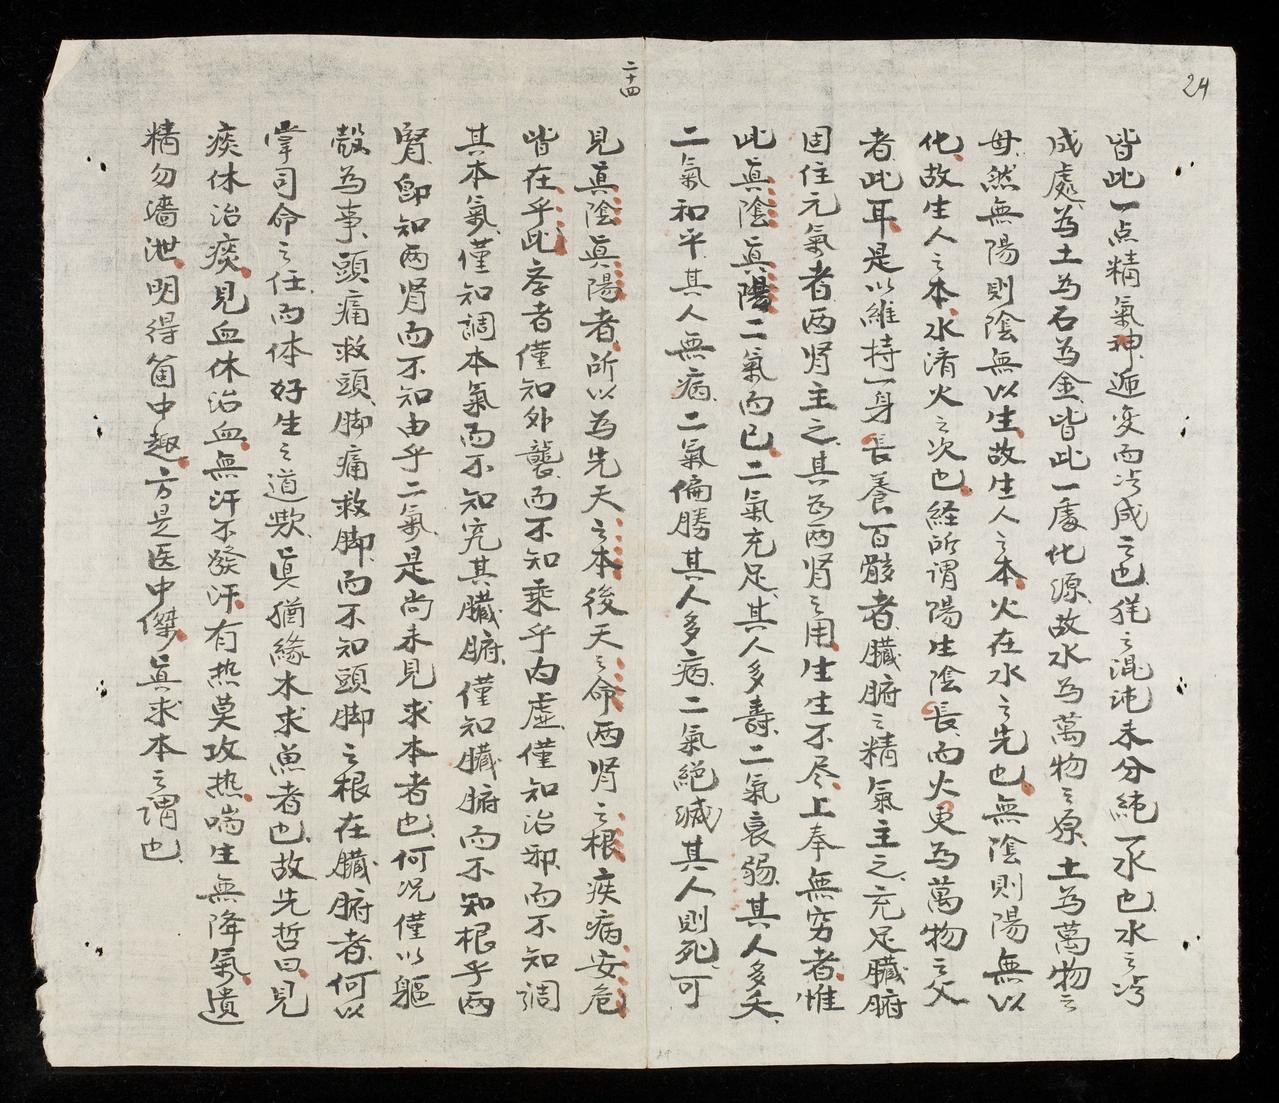 24
皆此一点精氣神遞变而凝成之也猶之混沌未分純一水也水之凝
成處為土為石為金皆此一處化源故水為萬物之原土為萬物之
母然無陽則陰無以生故生人之本火在水之先也無陰則陽無以
化故生人之本水濟火之次也経所谓陽生陰長而火更為萬物之父
者此耳是以維持一身長養百骸者臟腑之精氣主之充足臟腑
固住元氣者两肾主之其為两肾之用生生不尽上奉無穷者惟
此眞陰眞陽二氣而已二氣充足其人多壽二氣衰弱其人多夭
二氣和平其人無病二氣偏勝其人多病二氣絕滅其人則死可
二十四
見眞陰眞陽者所以為先天之本後天之命两肾之根疾病安危
皆在乎此斈者僅知外襲而不知乘乎内虚僅知治邪而不知調
其本氣僅知調本氣而不知究其臟腑僅知臟腑而不知根乎两
腎卽知两肾而不知由乎二氣是尚未見求本者也何况僅以軀
殻為事頭痛救頭脚痛救脚而不知頭脚之根在臟腑者何以
掌司命之任而体好生之道歟眞猶緣木求魚者也故先哲曰見
痰休治痰見血休治血無汗不發汗有热莫攻热喘生無降氣遺
精勿濇泄明得箇中趣方是医中傑眞求本之謂也